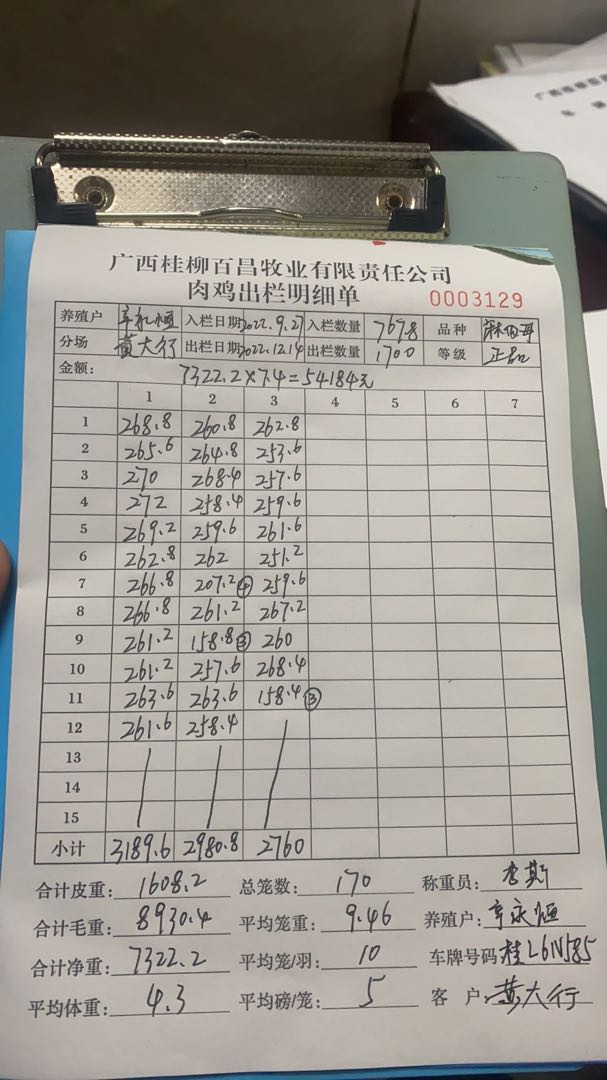 广西桂柳百昌牧业有限责任公司
肉鸡出栏明细单 0003129
养殖户 入栏日期 2022.9.27 入栏数量 7698 品种
分场 黄大行 出栏日期 2022.12.14 出栏数量 1700 等级 正品
金额: 7322.2×7.4=54184元
1 2 3 4 5 6 7
1 268.8 260.8 262.8
2 265.6 264.8 253.6
3 270 268.4 257.6
4 272 258.4 259.6
5 269.2 259.6 261.6
6 262.8 262 251.2
7 266.8 207.2④ 259.6
8 266.8 261.2 267.2
9 261.2 158.8③ 260
10 261.2 257.6 268.4
11 263.6 263.6 158.4③
12 261.6 258.4
13
14
15
小计 3189.6 2980.8 2760
合计皮重: 1608.2 总笼数: 170 称重员: 李斯
合计毛重: 8930.4 平均笼重: 9.46 养殖户: 辛永恒
合计净重: 7322.2 平均笼/羽: 10 车牌号码 桂L61N585
平均体重: 4.3 平均磅/笼: 5 客 户: 黄大行
广西桂柳百昌